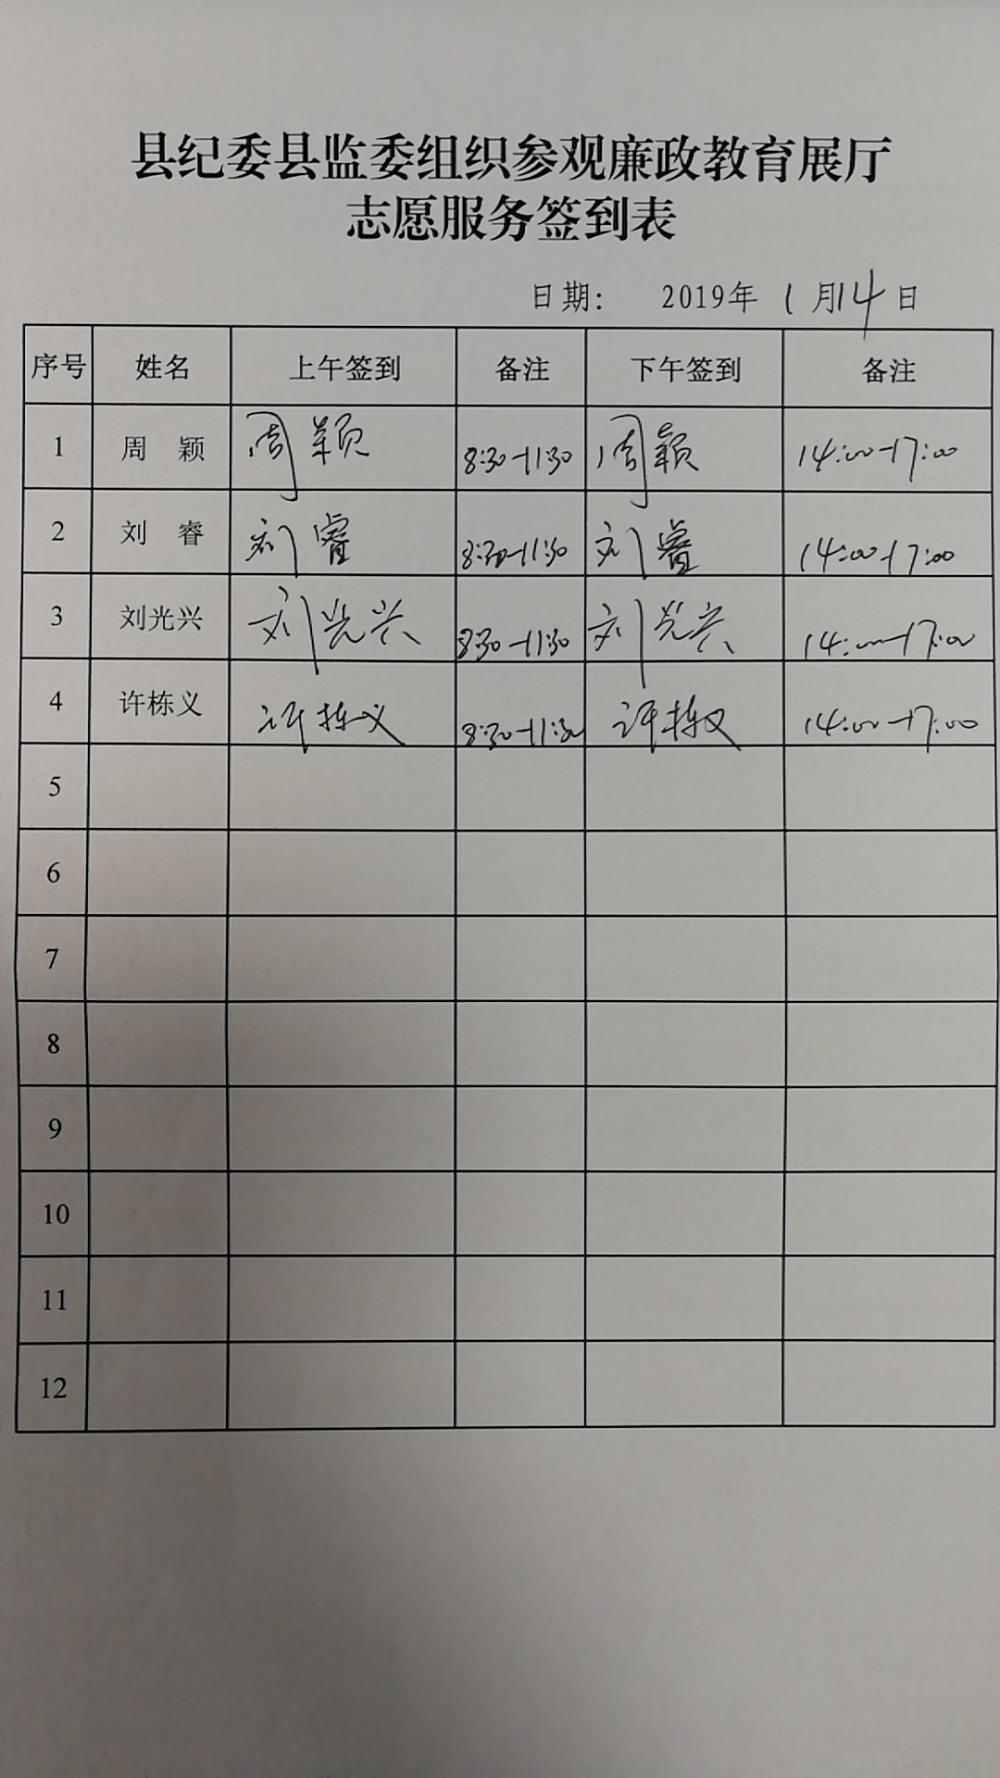 县纪委县监委组织参观廉政教育展厅
志愿服务签到表
日期： 2019年 1月14日
序号 姓名 上午签到 备注 下午签到 备注
1 周 颖 周颖 8:30-11:30 周颖 14:00-17:00
2 刘 睿 刘睿 8:30-11:30 刘睿 14:00-17:00
3 刘光兴 刘光兴 8:30-11:30 刘光兴 14:00-17:00
4 许栋义 许栋义 8:30-11:30 许栋义 14:00-17:00
5
6
7
8
9
10
11
12